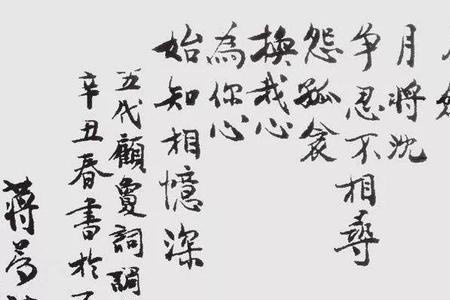 月將沈
争忍不相尋
怨孤衾
換我心
為你心
始知相憶深
五代顧敻詞調
辛丑春書於
蔣